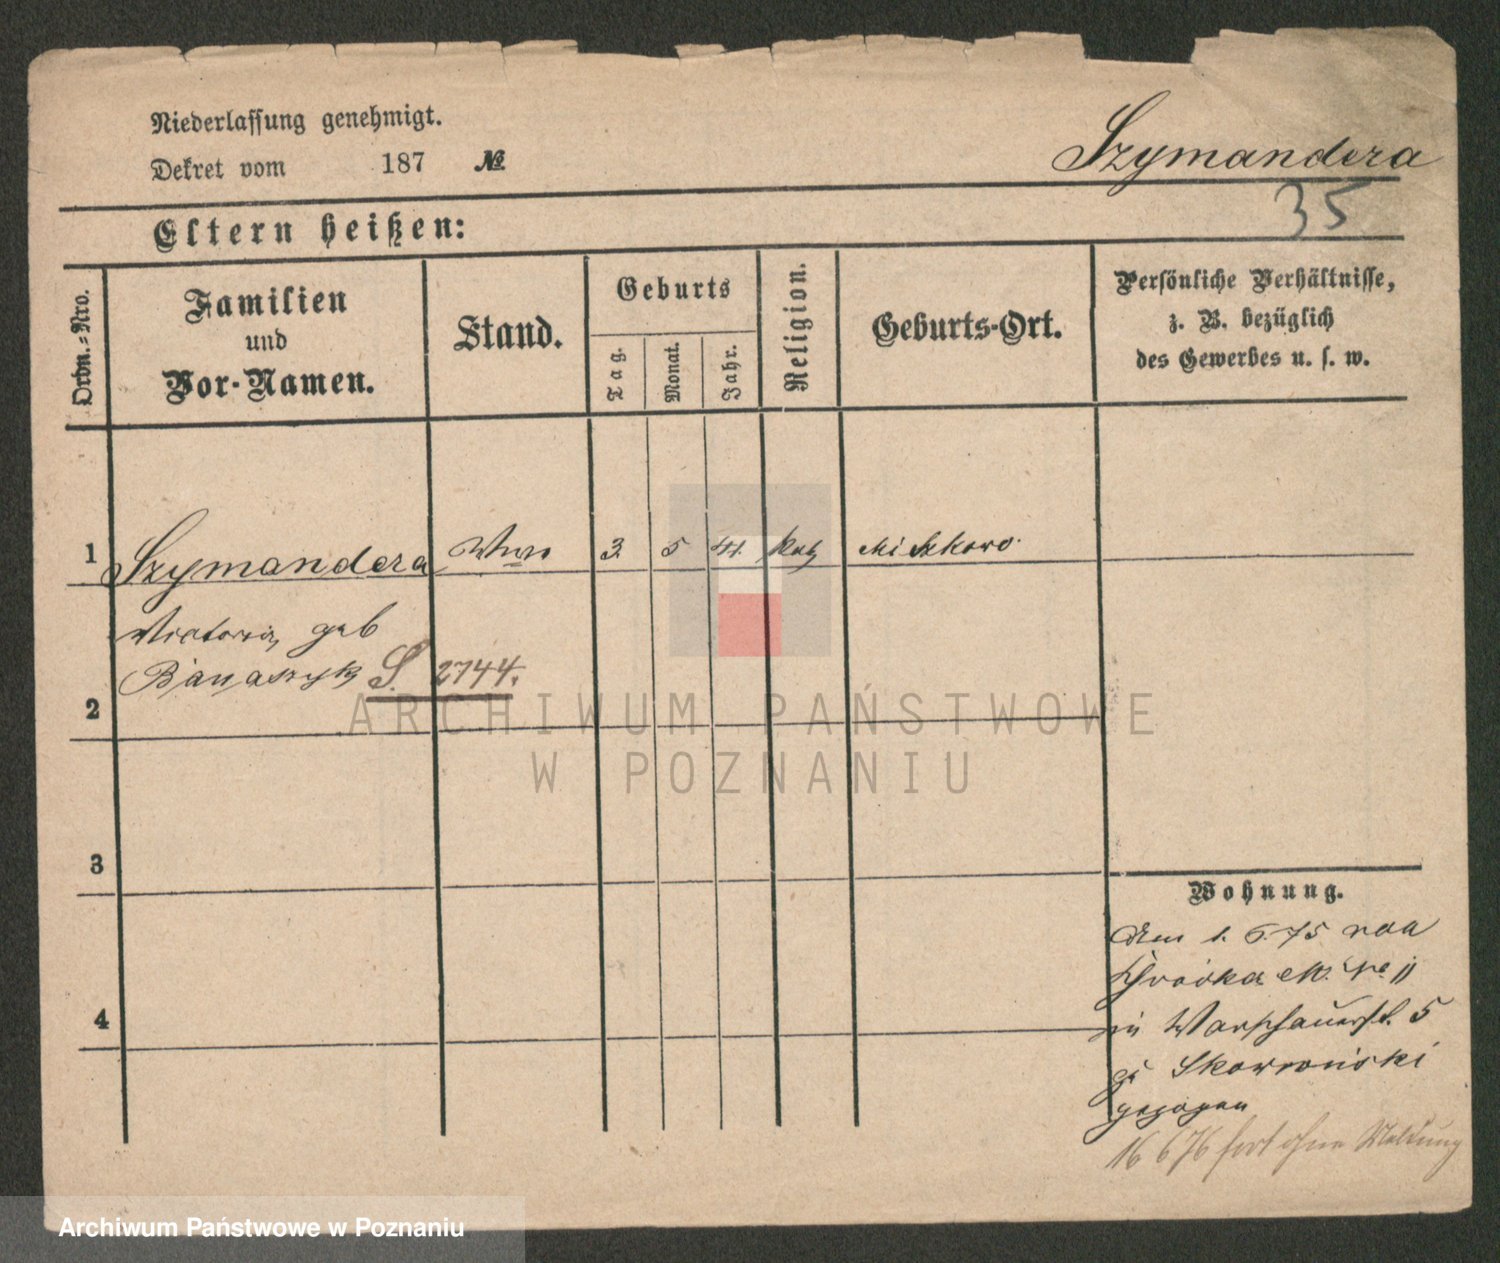 Niederlassung genehmigt.
Dekret vom 187 №
Szymandera
35
Eltern heißen:
Ordn.-Nro.
Familien
und
Vor-Namen.
Stand.
Geburts
Tag.
Monat.
Jahr.
Religion.
Geburts-Ort.
Persönliche Verhältnisse,
z. B. bezüglich
des Gewerbes u. s. w.
1 Szymandera Wwe 3. 5 41. Kath Miszkowo.
Victoria, geb
Banaszyk S. 2744.
2
3
4
Wohnung.
Am 1. 6. 75 von
Szrodka M. No 11
in Warschauerst. 5
zu Skowroński
gezogen
16 6 76 fort ohne Meldung
ARCHIWUM PAŃSTWOWE
W POZNANIU
Archiwum Państwowe w Poznaniu